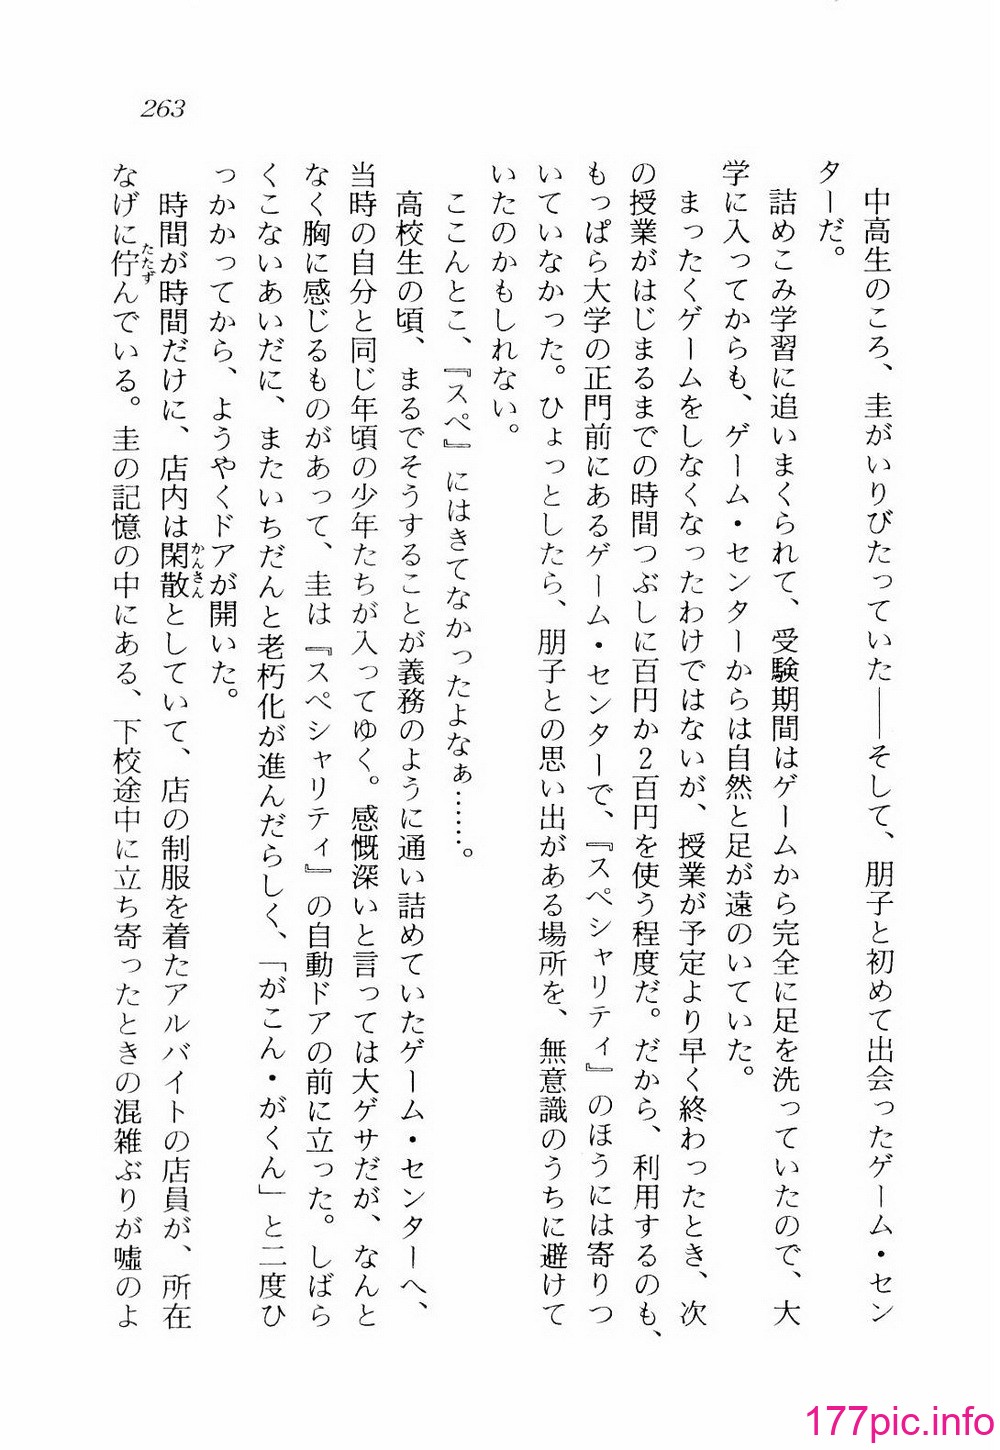 263
中高生のころ、圭がいりびたっていた――そして、朋子と初めて出会ったゲーム・セン
ターだ。
詰めこみ学習に追いまくられて、受験期間はゲームから完全に足を洗っていたので、大
学に入ってからも、ゲーム・センターからは自然と足が遠のいていた。
まったくゲームをしなくなったわけではないが、授業が予定より早く終わったとき、次
の授業がはじまるまでの時間つぶしに百円か２百円を使う程度だ。だから、利用するのも、
もっぱら大学の正門前にあるゲーム・センターで、『スペシャリティ』のほうには寄りつ
いていなかった。ひょっとしたら、朋子との思い出がある場所を、無意識のうちに避けて
いたのかもしれない。
ここんとこ、『スペ』にはきてなかったよなぁ……。
高校生の頃、まるでそうすることが義務のように通い詰めていたゲーム・センターへ、
当時の自分と同じ年頃の少年たちが入ってゆく。感慨深いと言っては大ゲサだが、なんと
なく胸に感じるものがあって、圭は『スペシャリティ』の自動ドアの前に立った。しばら
くこないあいだに、またいちだんと老朽化が進んだらしく、「がこん・がくん」と二度ひ
っかかってから、ようやくドアが開いた。
時間が時間だけに、店内は閑散かんさんとしていて、店の制服を着たアルバイトの店員が、所在
なげに佇たたずんでいる。圭の記憶の中にある、下校途中に立ち寄ったときの混雑ぶりが嘘のよ
177pic.info